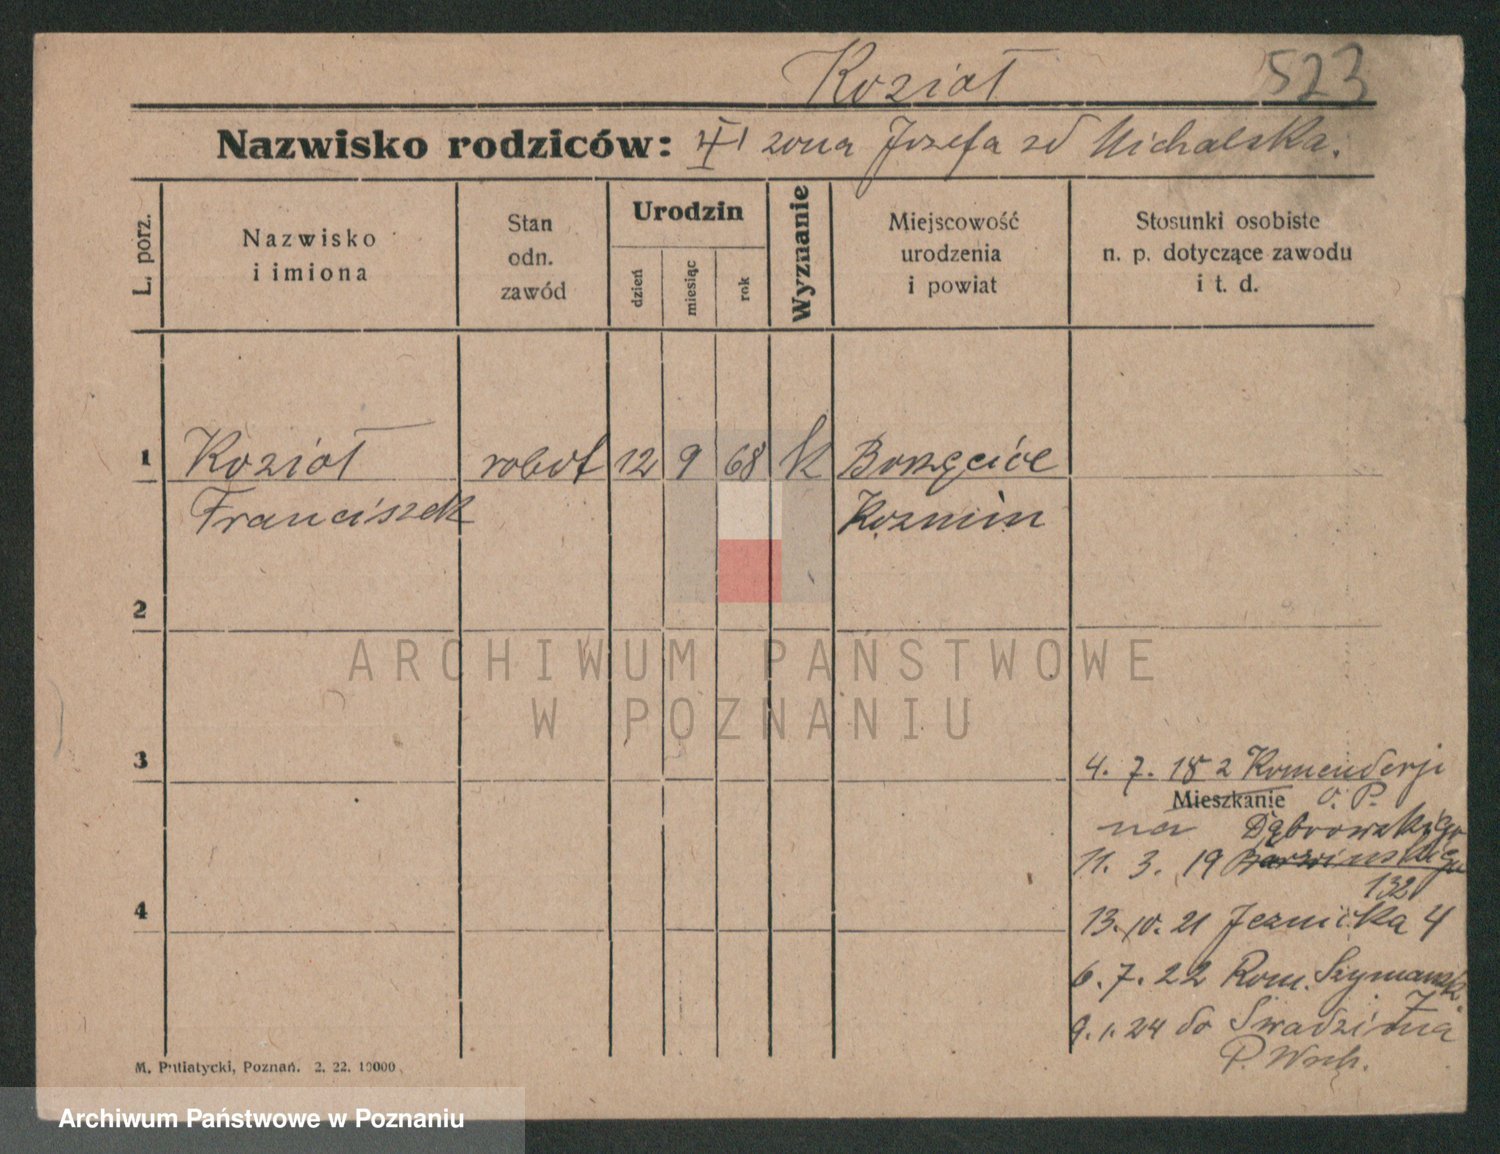 Kozioł 523
Nazwisko rodziców: II żona Józefa zd Michalska.
L. porz.
Nazwisko
i imiona
Stan
odn.
zawód
Urodzin
dzień
miesiąc
rok
Wyznanie
Miejscowość
urodzenia
i powiat
Stosunki osobiste
n. p. dotyczące zawodu
i t. d.
1 Kozioł robot 12 9 68 k Borzęcice
Franciszek Kozmin
2
3
4. 7. 18 z Komenderji
Mieszkanie o. P.
na Dąbrowskiego
11. 3. 19
132
4
13. 10. 21 4
6. 7. 22 Rom. Szymansk.
7
9. 1. 24 do Swadzimia
P. Wsch.
M. Putiatycki, Poznań. 2. 22. 10000
ARCHIWUM PAŃSTWOWE
W POZNANIU
Archiwum Państwowe w Poznaniu